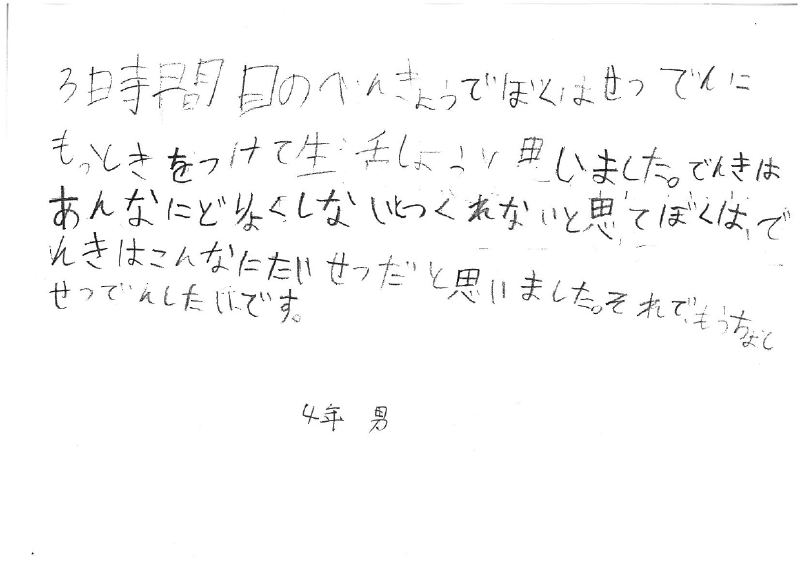 3時間目のべんきょうでぼくはせつでんに
もっときをつけて生活しようと思いました。でんきは
あんなにどりょくしないとつくれないと思てぼくは、で
んきはこんなにたいせつだと思いました。それで、もうちょと
せつでんしたいです。
4年 男